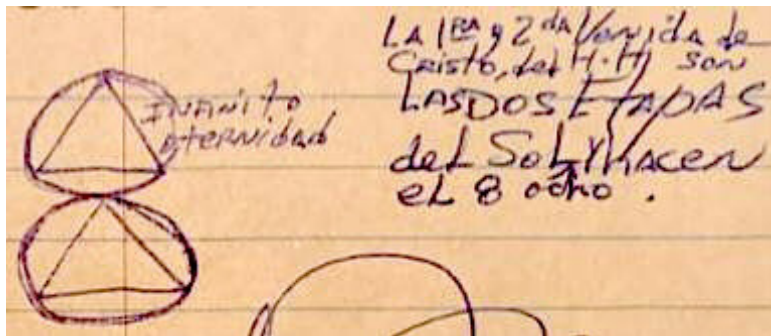 INFINITO
ETERNIDAD
LA 1ERA y 2da Venida de
Cristo, del H.H, son
LAS DOS ETAPAS
del SOL y HACEN
el 8 ocho.